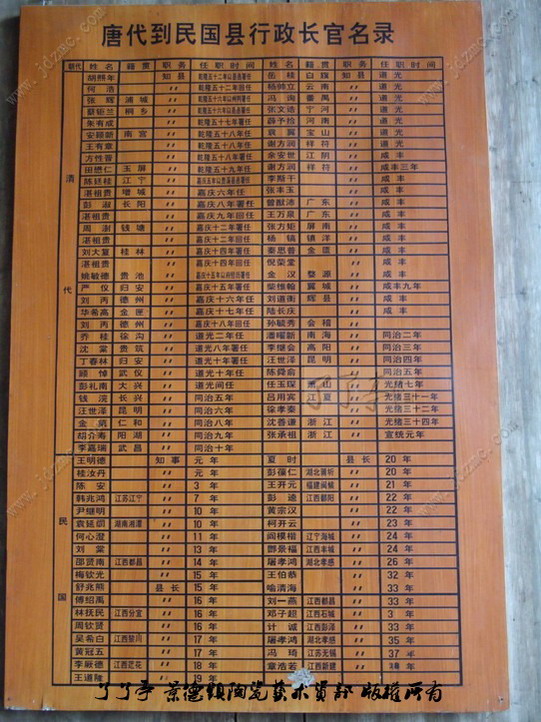 唐代到民国县行政长官名录
朝代 姓名 籍贯 职务 任职时间 姓名 籍贯 职务 任职时间
清代
胡熙年 知县 岳桂 白旗 知县 道光
何浩 〃 乾隆五十二年回任 杨帅立 云南 〃 道光
张辉 浦城 〃 冯询 番禺 〃 道光
蔡钜兰 桐乡 〃 张文迹 宁河 〃 道光
朱有成 〃 乾隆五十七年署 薛予拾 河南 〃 道光
安颐新 南宫 〃 乾隆五十八年任 袁冀 宝山 〃 道光
王有章 〃 乾隆五十八年任 谢方润 祥符 〃 咸丰
方性普 〃 乾隆五十八年署任 余安世 江阴 〃 咸丰
田懋仁 玉屏 〃 乾隆五十九年署任 谢方润 祥符 〃 咸丰三年
陈廷桂 江宁 〃 李斯干 〃 咸丰
湛祖贵 增城 〃 嘉庆六年任 张丰玉 〃 咸丰
彭淑 长阳 〃 嘉庆八年署任 曾猷沛 广东 〃 咸丰
湛祖贵 〃 嘉庆九年回任 王万泉 广东 〃 咸丰
周澍 钱塘 〃 嘉庆十二年任 张方矩 屏南 〃 咸丰
湛祖贵 〃 嘉庆十二年回任 杨镐 镇洋 〃 咸丰
刘大夏 桂林 〃 嘉庆十四年署任 秦恩普 金匮 〃 咸丰
湛祖贵 〃 嘉庆十四年回任 倪荣堂 〃 咸丰
姚敏德 贵池 〃 金汉 婺源 〃 咸丰
严仪 归安 〃 嘉庆十五年署任 柴维翰 翼城 〃 咸丰九年
刘丙 德州 〃 嘉庆十六年任 刘道衡 辉县 〃 咸丰
华希高 金匮 〃 嘉庆十七年任 陆长庆 〃 咸丰
刘丙 德州 〃 嘉庆十八年回任 孙毓秀 会稽 〃
乔桂 徐沟 〃 道光二年任 潘曜新 南海 〃 同治二年
沈棠 贵筑 〃 道光八年署任 李继会 高阳 〃 同治三年
丁春林 归安 〃 道光十年署任 汪世泽 昆明 〃 同治四年
顾悼 武仪 〃 道光十年任 陈舜俞 〃 同治五年
彭礼南 大兴 〃 道光间任 任玉琛 萧山 〃 光绪七年
钱浣 长兴 〃 同治五年 吕用宾 江夏 〃 光绪三十一年
汪世泽 昆明 〃 同治六年 徐孝秦 〃 光绪三十二年
金炳 仁和 〃 同治八年 沈香谦 浙江 〃 光绪三十四年
胡介寿 阳湖 〃 同治十年 张承祖 浙江 〃 宣统元年
李嘉瑞 武昌 〃 同治十年
民国
王明德 知事 元年 夏时 县长 20年
桂汝丹 〃 元年 彭葆仁 湖北黄圻 〃 20年
陈安 〃 3年 王开元 福建闽候 〃 21年
韩兆鸿 江苏江宁 〃 7年 彭迪 江西鄱阳 〃 22年
尹继明 〃 10年 黄宗汉 〃 22年
袁延闿 湖南湘潭 〃 10年 柯开云 〃 23年
何心澄 〃 11年 阎模楷 辽宁海城 〃 24年
刘棠 〃 13年 鄭景福 江西丰城 〃 24年
邵贤南 江西都昌 〃 14年 屠孝鸿 湖北孝感 〃 26年
梅钦光 〃 15年 王伯恭 〃 32年
舒兆熊 县长 15年 喻清海 〃 33年
傅绍禹 〃 16年 刘一燕 江西都昌 〃 33年
林抚民 江西分宜 〃 16年 邓子超 江西石城 〃 3年
周钦贤 〃 16年 计诚 江西彭泽 〃 33年
吴希白 〃 17年 屠孝鸿 湖北孝感 〃 35年
黄冠五 〃 17年 冯琦 江苏无锡 〃 37年
李厥德 江西芷花 〃 18年 章浩若 江西新建 〃
王道隆 〃 19年
了了亭 景德镇陶瓷艺术资讯 版权所有
www.jdzmc.com